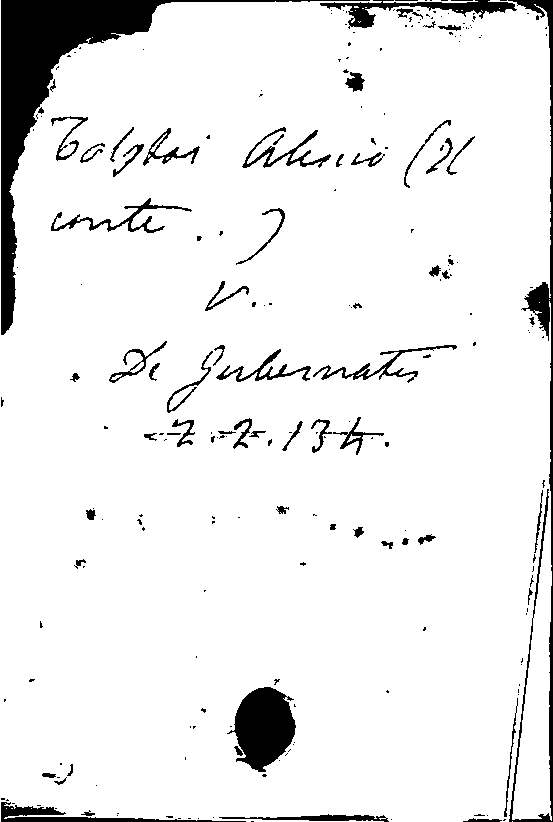 Tolstoi Alessio (Il
conte . . )
V.
De Gubernatis
Z.2.134.